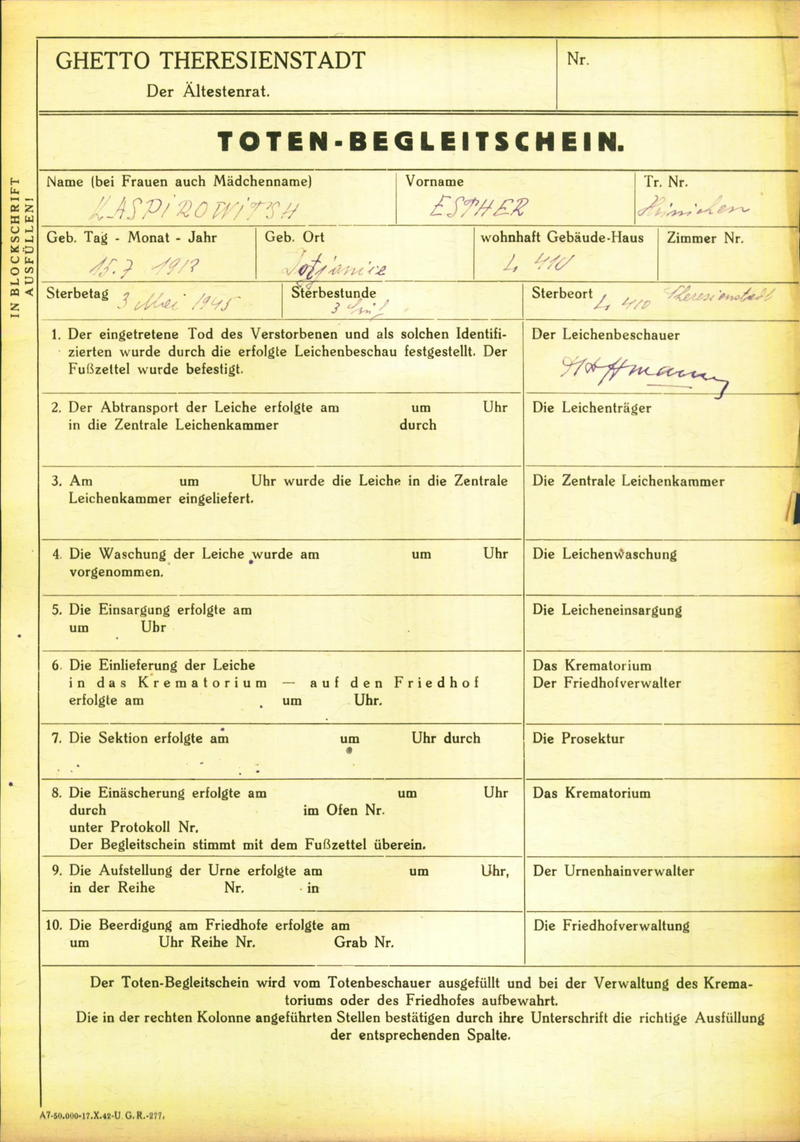 GHETTO THERESIENSTADT
Der Ältestenrat.
Nr.
TOTEN-BEGLEITSCHEIN.
IN BLOCKSCHRIFT
AUSFÜLLEN!
Name (bei Frauen auch Mädchenname)
KASPIROWITSH
Vorname
ESTHER
Tr. Nr.
Geb. Tag - Monat - Jahr
Geb. Ort
wohnhaft Gebäude-Haus
L 410
Zimmer Nr.
Sterbetag 3 Mai 1945
Sterbestunde
3
Sterbeort L 410 Theresienstadt
1. Der eingetretene Tod des Verstorbenen und als solchen Identifi-
zierten wurde durch die erfolgte Leichenbeschau festgestellt. Der
Fußzettel wurde befestigt.
Der Leichenbeschauer
Hoffmann
2. Der Abtransport der Leiche erfolgte am um Uhr
in die Zentrale Leichenkammer durch
Die Leichenträger
3. Am um Uhr wurde die Leiche in die Zentrale
Leichenkammer eingeliefert.
Die Zentrale Leichenkammer
4. Die Waschung der Leiche wurde am um Uhr
vorgenommen.
Die Leichenwaschung
5. Die Einsargung erfolgte am
um Uhr
Die Leicheneinsargung
6. Die Einlieferung der Leiche
in das Krematorium — auf den Friedhof
erfolgte am um Uhr.
Das Krematorium
Der Friedhofverwalter
7. Die Sektion erfolgte am um Uhr durch
Die Prosektur
8. Die Einäscherung erfolgte am um Uhr
durch im Ofen Nr.
unter Protokoll Nr.
Der Begleitschein stimmt mit dem Fußzettel überein.
Das Krematorium
9. Die Aufstellung der Urne erfolgte am um Uhr,
in der Reihe Nr. in
Der Urnenhainverwalter
10. Die Beerdigung am Friedhofe erfolgte am
um Uhr Reihe Nr. Grab Nr.
Die Friedhofverwaltung
Der Toten-Begleitschein wird vom Totenbeschauer ausgefüllt und bei der Verwaltung des Krema-
toriums oder des Friedhofes aufbewahrt.
Die in der rechten Kolonne angeführten Stellen bestätigen durch ihre Unterschrift die richtige Ausfüllung
der entsprechenden Spalte.
A7-50.000-17.X.42-U. G. R.-277.